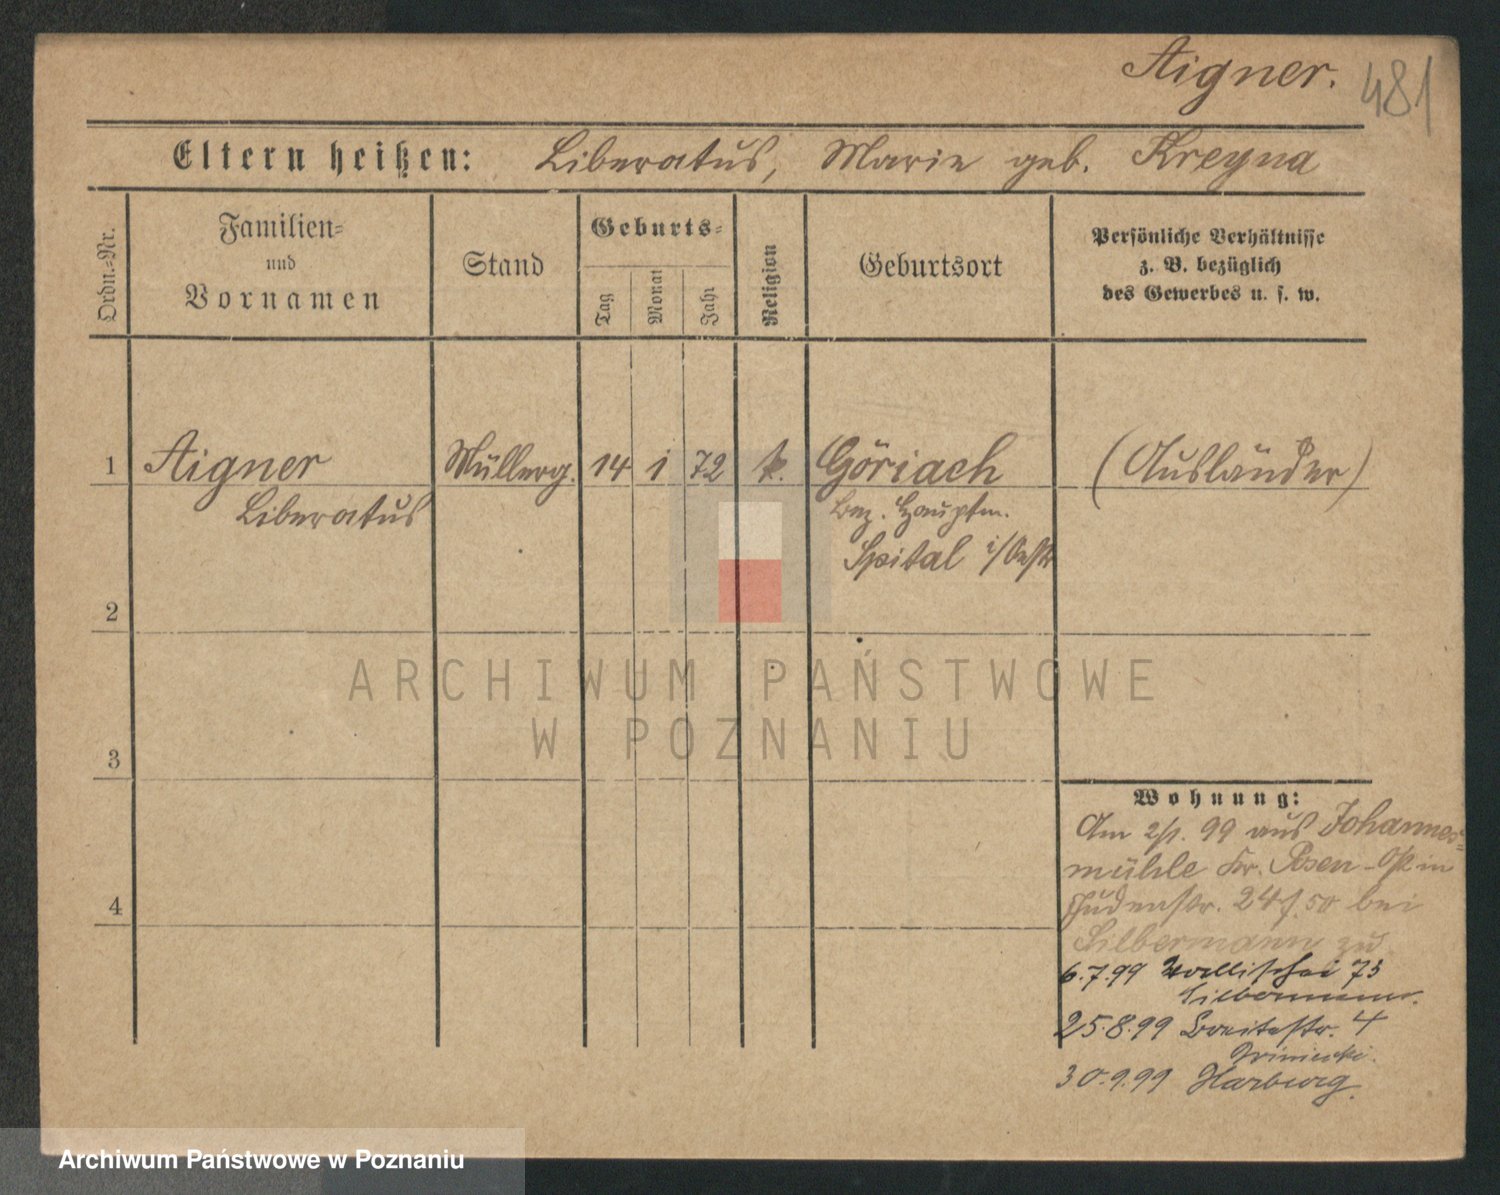 Aigner.
481
Eltern heißen: Liberatus, Marie geb. Kreyna
Ordn.-Nr.
Familien-
und
Vornamen
Stand
Geburts-
Tag
Monat
Jahr
Religion
Geburtsort
Persönliche Verhältnisse
z. B. bezüglich
des Gewerbes u. s. w.
1 Aigner Müllerg. 14 1 72 k. Göriach (Ausländer)
Liberatus Bez. Hauptm.
Spital i/Oestr
2
3
4
ARCHIWUM PAŃSTWOWE
W POZNANIU
Wohnung:
Am 2/1. 99 aus Johannes-
mühle Kr. Posen-Ost in
Judenstr. 24 bei
Silbermann
6.7.99 Wallischei 73
Silbermann.
25.8.99 Breitestr. 4
30.9.99 Harburg.
Archiwum Państwowe w Poznaniu